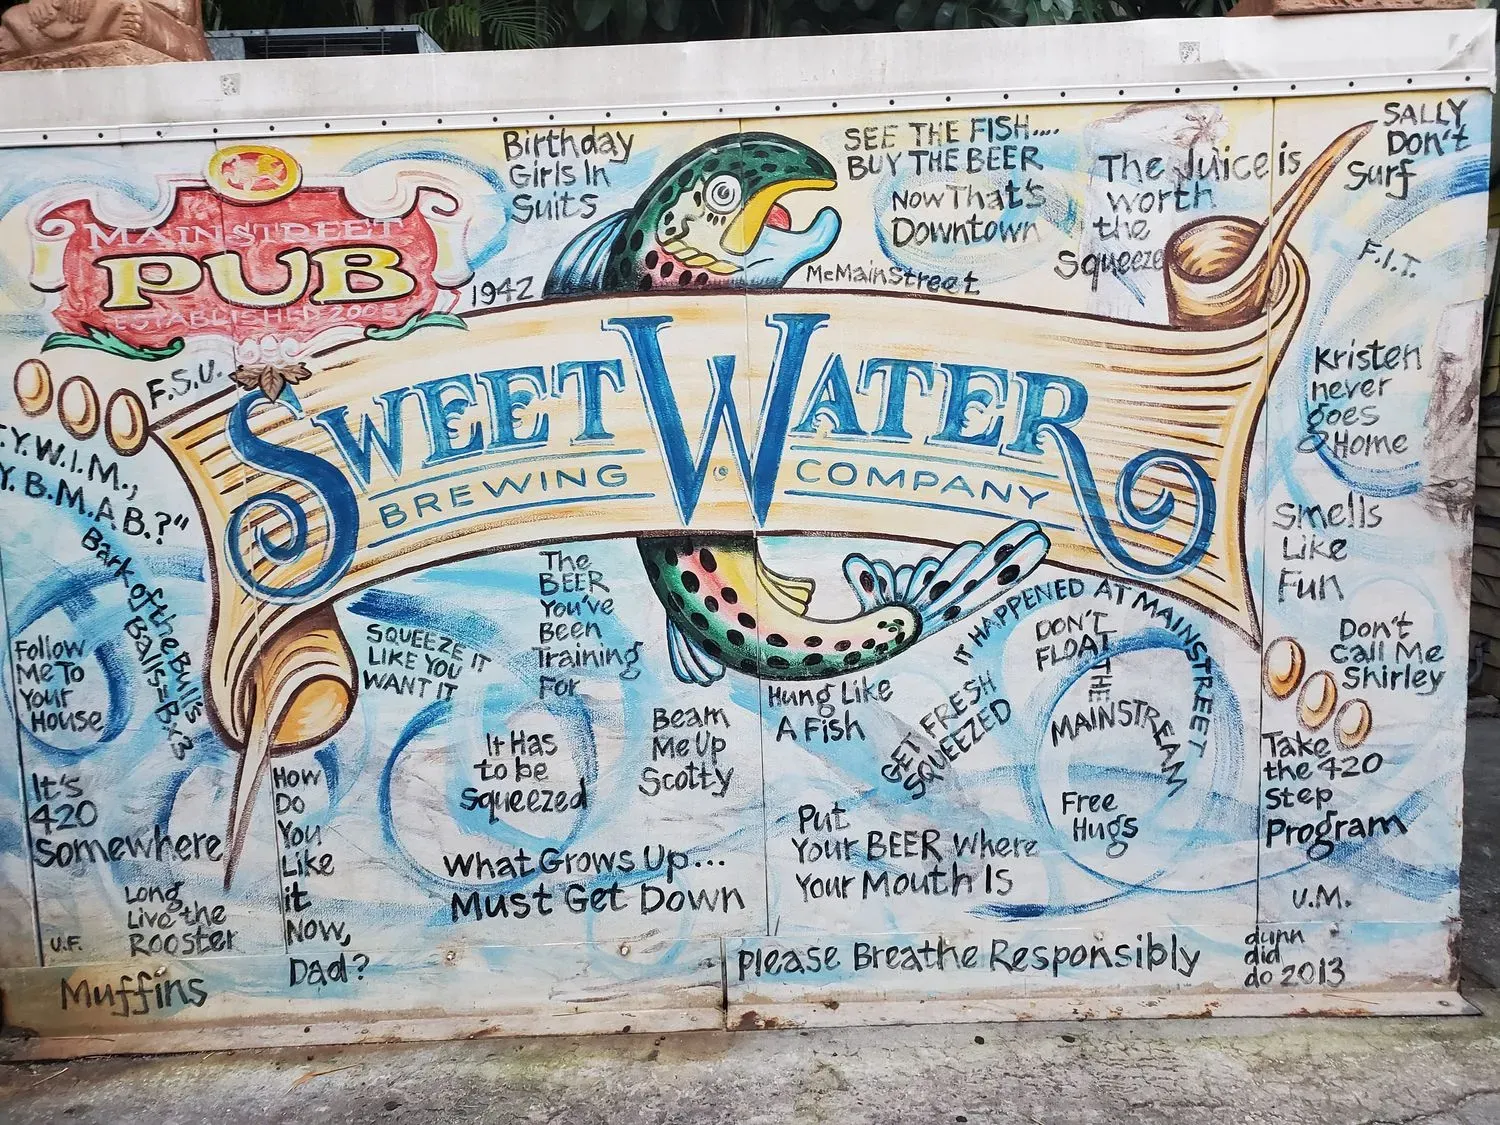 MAINSTREET
PUB
ESTABLISHED 2005
Birthday
Girls In
Suits
1942
SEE THE FISH....
BUY THE BEER
Now That's
Downtown
McMainStreet
The Juice is
worth
the
Squeeze
SALLY
Don't
Surf
F.I.T.
F.S.U.
SWEETWATER
BREWING COMPANY
Kristen
never
goes
Home
.Y.W.I.M.,
Y.B.M.A.B.?"
Bark of the Bull's
Balls=B.x3
Smells
Like
Fun
Follow
Me To
Your
House
SQUEEZE IT
LIKE YOU
WANT IT
The
BEER
You've
Been
Training
For
IT HAPPENED AT MAINSTREET
DON'T
FLOAT
THE
MAINSTREAM
Don't
Call Me
Shirley
Hung Like
A Fish
GET FRESH
SQUEEZED
It Has
to be
Squeezed
Beam
Me Up
Scotty
Take
the 420
Step
Program
It's
420
Somewhere
How
Do
You
Like
it
Now,
Dad?
What Grows Up...
Must Get Down
Put
Your BEER Where
Your Mouth Is
Free
Hugs
Long
Live the
Rooster
U.F.
Muffins
U.M.
please Breathe Responsibly
dunn
did
do 2013